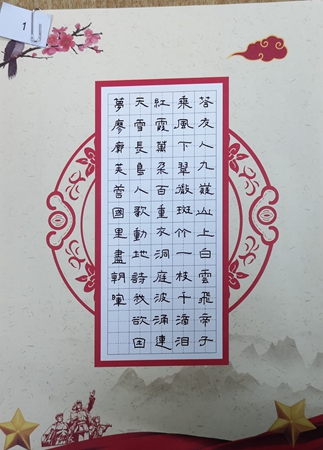 1
荅友人九嶷山上白雲飛帝子
乘風下翠微斑竹一枝千滴泪
紅霞萬朵百重衣洞庭波涌連
天雪長島人歌動地詩我欲因
夢廖廓芙蓉國里盡朝暉